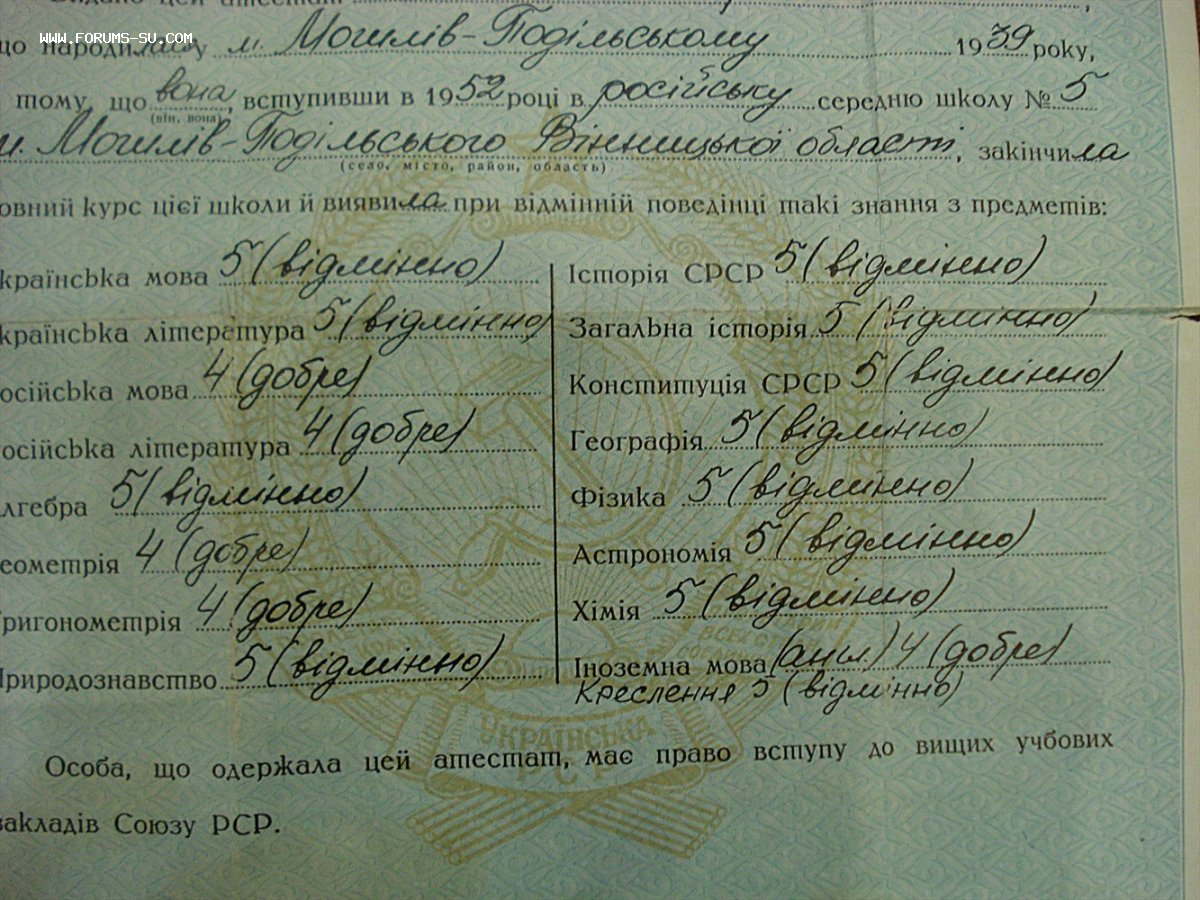 Видано цей атестат
www.forums-su.com
що народилась у м. Могилів-Подільському 1939 року,
тому, що вона, вступивши в 1952 році в російську середню школу № 5
(він, вона)
м. Могилів-Подільського Вінницької області, закінчила
(село, місто, район, область)
овний курс цієї школи й виявила при відмінній поведінці такі знання з предметів:
країнська мова 5 (відмінно)
країнська література 5 (відмінно)
осійська мова 4 (добре)
осійська література 4 (добре)
лгебра 5 (відмінно)
еометрія 4 (добре)
ригонометрія 4 (добре)
Природознавство 5 (відмінно)
Історія СРСР 5 (відмінно)
Загальна історія 5 (відмінно)
Конституція СРСР 5 (відмінно)
Географія 5 (відмінно)
Фізика 5 (відмінно)
Астрономія 5 (відмінно)
Хімія 5 (відмінно)
Іноземна мова (англ.) 4 (добре)
Креслення 5 (відмінно)
УКРАЇНСЬКА
РСР
Особа, що одержала цей атестат, має право вступу до вищих учбових
закладів Союзу РСР.